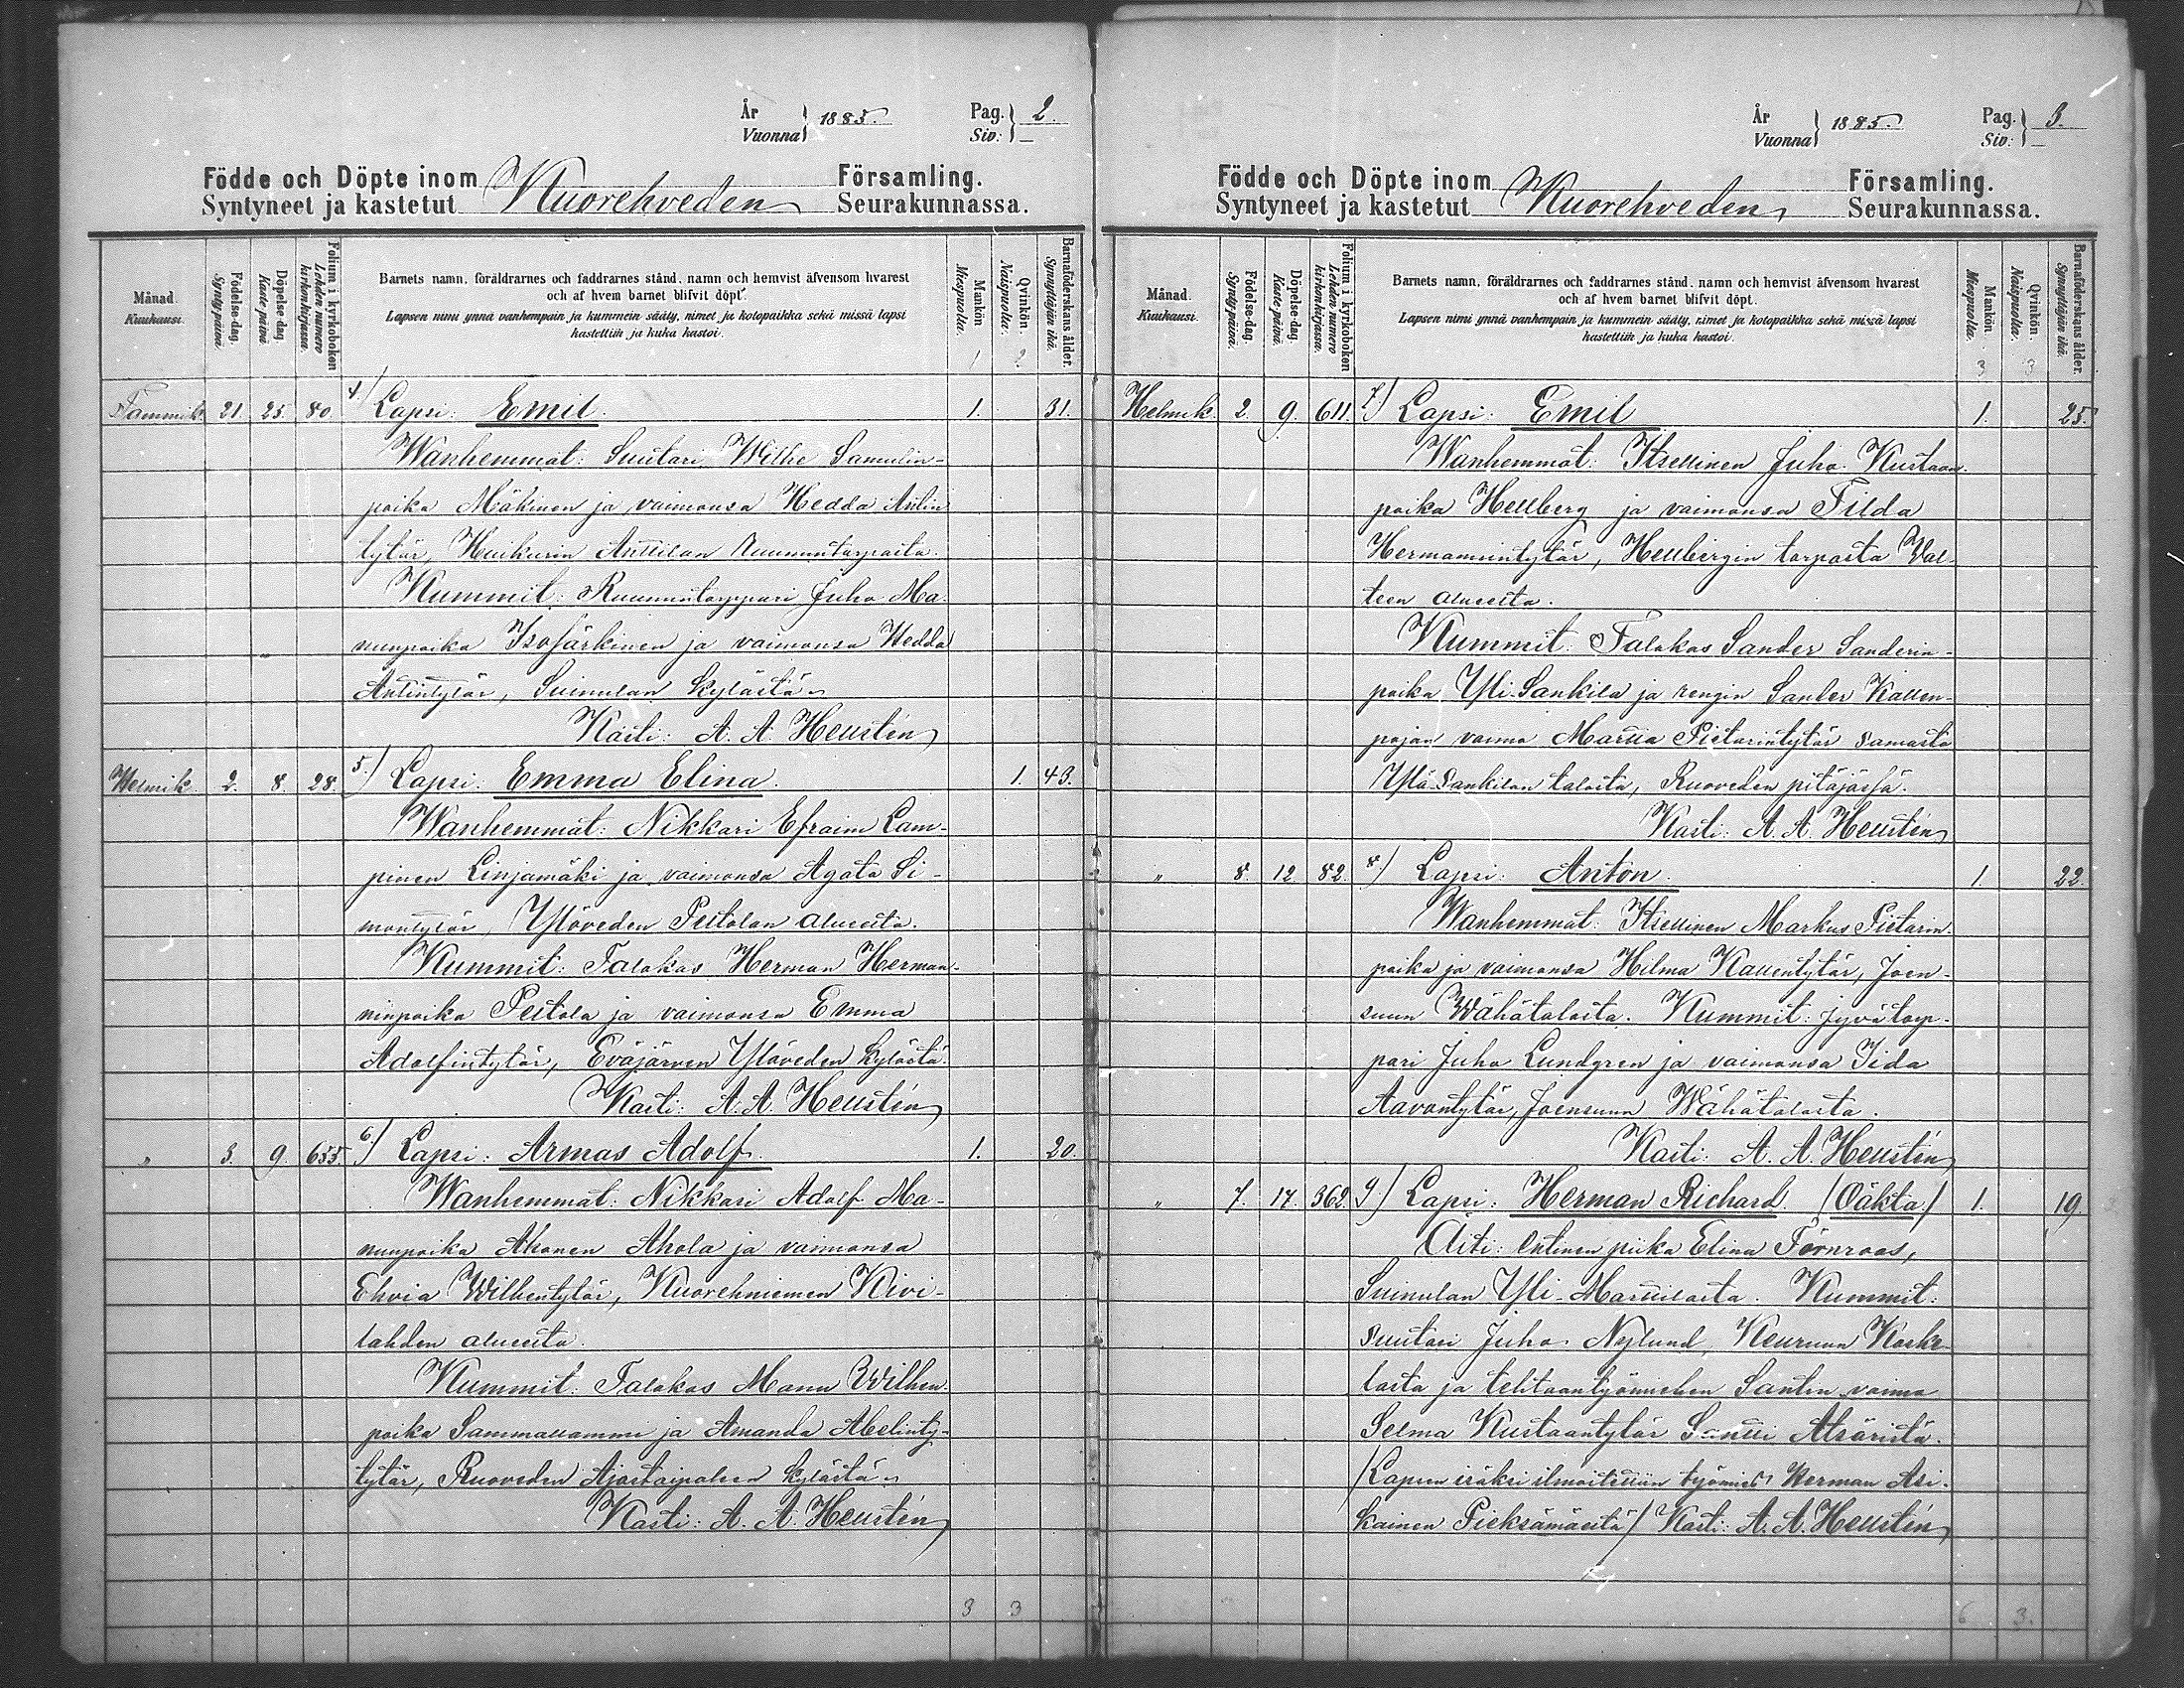 År
Vuonna } 1885.
Pag.
Siv: } 2.
Födde och Döpte inom Kuorehveden Församling.
Syntyneet ja kastetut Seurakunnassa.
Månad. Kuukausi.
Födelse-dag. Syntypäivä.
Döpelse-dag. Kaste päivä
Folium i kyrkoboken Lehden numero kirkonkirjassa.
Barnets namn, föräldrarnes och faddrarnes stånd, namn och hemvist äfvensom hvarest
och af hvem barnet blifvit döpt.
Lapsen nimi ynnä vanhempain ja kummein sääty, nimet ja kotopaikka sekä missä lapsi
kastettiin ja kuka kastoi.
Mankön Miespuolia.
Qvinkön. Naispuolia.
Barnaföderskans ålder. Synnyttäjän ikä.
1 2
Tammik. 21. 25. 80. 4.) Lapsi: Emil. 1. 31.
Wanhemmat: Suutari Wilhe Samulin-
poika Mäkinen ja vaimonsa Hedda Antin
tytär, Huikurin Anttilan Ruununtorpasta.
Kummit: Ruununtorppari Juho Ma
nunpoika Isojärkinen ja vaimonsa Hedda
Antintytär, Suinulan kylästä.
Kasti: A. A. Hellstén
Helmik. 2. 8. 28. 5.) Lapsi: Emma Elina. 1. 43.
Wanhemmat: Nikkari Efraim Lam-
pinen Linjamäki ja vaimonsa Agata Si-
montytär, Ylöveden Peltolan alueelta.
Kummit: Talokas Herman Herman-
ninpoika Peltola ja vaimonsa Emma
Adolfintytär, Eväjärven Ylöveden kylästä.
Kasti: A. A. Hellstén
" 3. 9. 655. 6.) Lapsi: Armas Adolf. 1. 20.
Wanhemmat: Nikkari Adolf Ma-
nunpoika Ahonen Ahola ja vaimonsa
Elvia Wilhentytär, Kuorehniemen Kivi-
lahden alueelta.
Kummit: Talokas Manu Wilhen-
poika Sammallammi ja Amanda Abelinty-
tytär, Ruoveden Ajostaipaleen kylästä.
Kasti: A. A. Hellstén
3 3
År
Vuonna } 1885.
Pag.
Siv: } 3.
Födde och Döpte inom Kuorehveden Församling.
Syntyneet ja kastetut Seurakunnassa.
Månad. Kuukausi.
Födelse-dag. Syntypäivä.
Döpelse-dag. Kaste päivä.
Folium i kyrkoboken Lehden numero kirkonkirjassa.
Barnets namn, föräldrarnes och faddrarnes stånd, namn och hemvist äfvensom hvarest
och af hvem barnet blifvit döpt.
Lapsen nimi ynnä vanhempain ja kummein sääty, nimet ja kotopaikka sekä missä lapsi
kastettiin ja kuka kastoi.
Mankön Miespuolia.
Qvinkön. Naispuolia.
Barnaföderskans ålder. Synnyttäjän ikä.
3 3
Helmik. 2. 9. 611. 7.) Lapsi: Emil 1. 25.
Wanhemmat: Itsellinen Juho Kustaan-
poika Hellberg ja vaimonsa Tilda
Hermannintytär, Hellbergin torpasta Val-
teen alueelta.
Kummit: Talokas Sander Sanderin-
poika Yli-Sankila ja rengin Sander Kallen-
pojan vaimo Maria Pietarintytär samasta
Ylä-Sankilan talosta, Ruoveden pitäjässä.
Kasti: A. A. Hellstén
" 8. 12. 82. 8.) Lapsi: Anton. 1. 22.
Wanhemmat: Itsellinen Markus Pietarin-
poika ja vaimonsa Hilma Kallentytär, Joen-
suun Wähätalosta. Kummit: Jyvätorp-
pari Juho Lundgren ja vaimonsa Iida
Aavontytär, Joensuun Wähätalosta.
Kasti: A. A. Hellstén
" 7. 17. 362. 9.) Lapsi: Herman Richard. (Oäkta.) 1. 19.
Äiti: entinen piika Elina Törnroos,
Suinulan Yli-Marttilasta. Kummit:
Suutari Juho Nylund, Keuruun Koske-
lasta ja tehtaantyömiehen Santin vaimo
Selma Kustaantytär Santti Atsäristä.
(Lapsen isäksi ilmoitettiin työmies Herman Asi-
kainen Pieksämäeltä) Kasti: A. A. Hellstén
6 3.